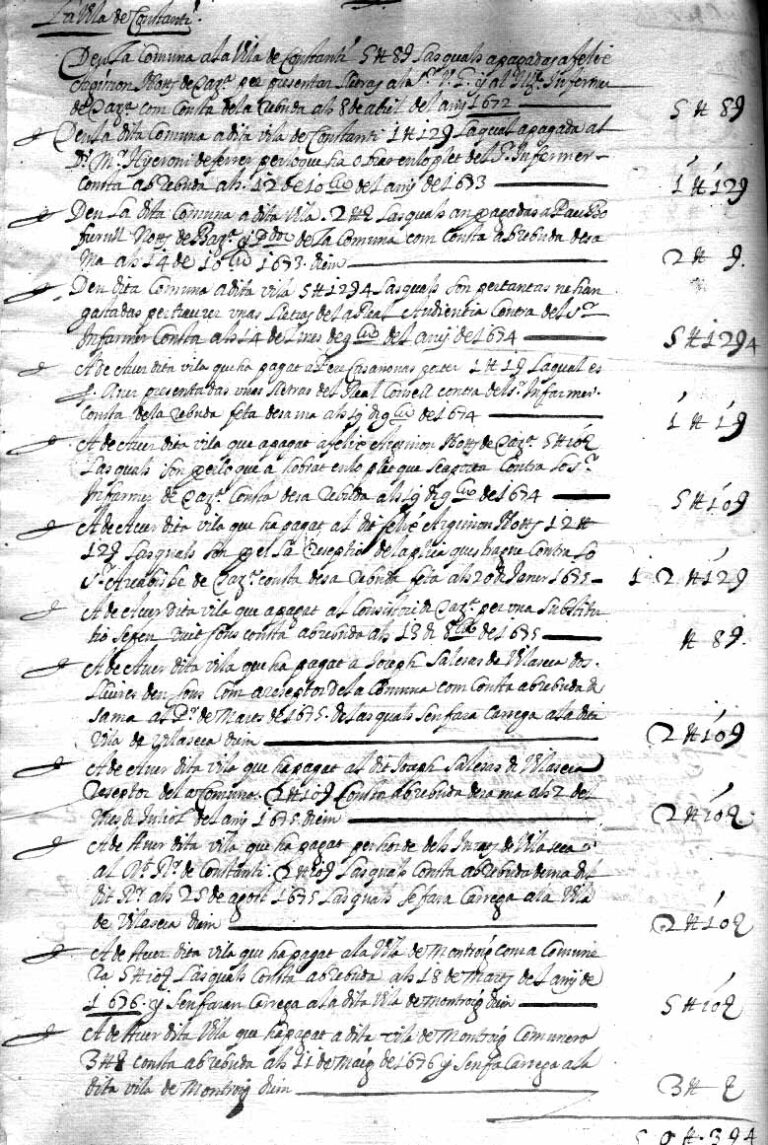 La Vila de Constantí.
Deu la Comuna a la Vila de Constanti 5 ₶ 8 § las quals a pagadas a felix
Notts de Tarª per presentar lletras al Sr. y al Infermer
de Tarª com consta de la rebuda als 8 de abril del any 1672 5 ₶ 8 §
Deu la dita Comuna a dita vila de Constanti 1 ₶ 12 § la qual a pagada al
Dr. Mr. Hyeroni de ferrer per lo que ha obrar en lo plet del Sr. Infermer
Consta ab rebuda als 12 de 10bre del any de 1673 1 ₶ 12 §
Deu la dita Comuna a dita vila 2 ₶ § las quals an pagadas a Pau Bo
furull Nott de Tarª y de la Comuna com consta ab rebuda de sa
ma als 14 de 10bre 1673 dich 2 ₶ §.
Deu dita Comuna a dita vila 5 ₶ 12 § 4 las quals son per tantas ne han
gastadas per traurer unas lletras de la Real Audientia Contra del Sr.
Infermer Consta als 14 de de 9bre del any de 1674 5 ₶ 12 § 4
A de Aver dita vila que ha pagat a Pere Casanovas porter 1 ₶ 1 § la qual es
p. aver presentadas unas lletras del Real Consell contra del Sr. Infarmer.
Consta de la rebuda feta de sa ma als 9bre de 1674 1 ₶ 1 §
A de Aver dita vila que a pagat a felix Nott de Tarª 5 ₶ 10 §
las quals son per lo que a hobrat en lo plet que se aporta Contra lo Sr.
Infermer de Tarª Consta de sa rebuda als de 9bre de 1674 5 ₶ 10 §
A de Aver dita vila que ha pagat al dit felix Nott 12 ₶
12 § las quals son per la reseptio de la que hague Contra lo
Sr. Arcabisbe de Tarª consta de sa rebuda feta als 20 de Janer 1675 12 ₶ 12 §
A de Aver dita vila que a pagat al Consistori de Tarª per una substitu
tio vuit sous consta ab rebuda als 13 de 8bre de 1675 ₶ 8 §.
A de Aver dita vila que ha pagat a Joseph Saleras de Vilaseca dos
lliures deu sous com a reseptor de la Comuna com consta ab rebuda de
sa ma al Pr. de Mars de 1675. de las quals sen fara Carrega a la dita
Vila de Vilaseca dich 2 ₶ 10 §
A de Aver dita vila que ha pagat al dit Joseph Saleras de Vilaseca
Reseptor de la Comuna. 2 ₶ 10 § Consta ab rebuda de sa ma als 2 del
Mes de Juliol del any 1675 dich 2 ₶ 10 §
A de Aver dita vila que ha pagat per horde dels Jurats de Vilaseca
al Rt. Rr. de Constanti. 2 ₶ 10 § las quals Consta ab rebuda de ma del
dit Rr. als 25 de agost 1675 las quals se fara Carrega a la Vila
de Vilaseca dich 2 ₶ 10 §
A de Aver dita vila que ha pagat a la Vila de Montroig com a Comune
ra 5 ₶ 10 § las quals Consta ab rebuda als 18 de Mars de l any de
1676. y sen faran Carrega a la dita Vila de Montroig dich 5 ₶ 10 §
A de Aver dita Vila que ha pagat a dita vila de Montroig Comunera
3 ₶ § consta ab rebuda als 11 de Maig de 1676 y sen fa Carrega a la
dita vila de Montroig dich 3 ₶ §
50 ₶ . 3 § 4